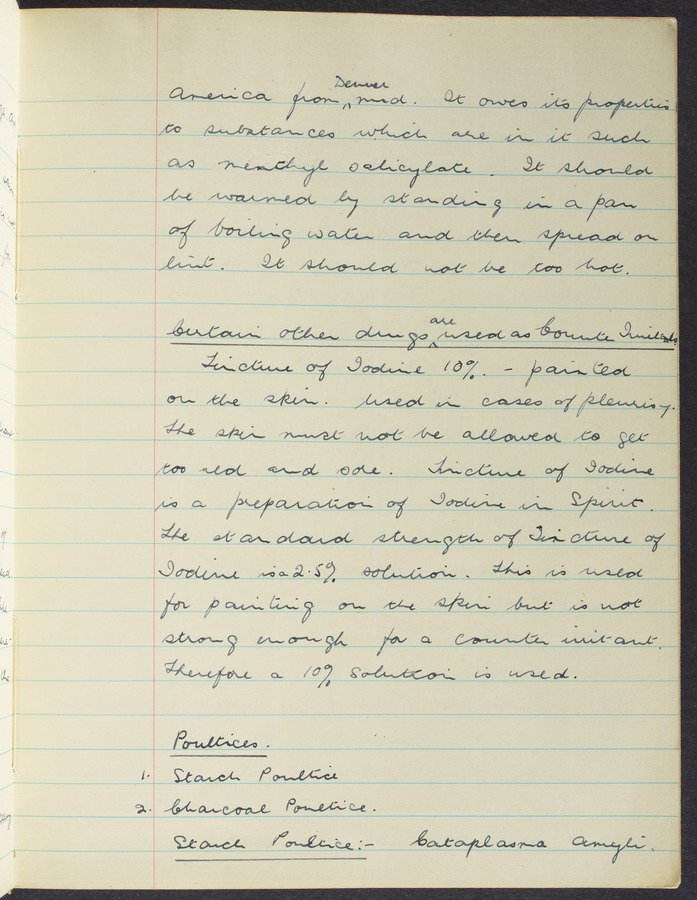 America from Denver mud. It owes its properties
to substances which are in it such
as menthyl salicylate. It should
be warmed by standing in a pan
of boiling water and then spread on
lint. It should not be too hot.
Certain other drugs are used as Counter Irritants
Tincture of Iodine 10%. - painted
on the skin. Used in cases of pleurisy.
The skin must not be allowed to get
too red and sore. Tincture of Iodine
is a preparation of Iodine in Spirit.
The standard strength of Tincture of
Iodine is a 2.5% solution. This is used
for painting on the skin but is not
strong enough for a counter irritant.
Therefore a 10% solution is used.
Poultices.
1. Starch Poultice
2. Charcoal Poultice.
Starch Poultice:- Cataplasma Amyli.